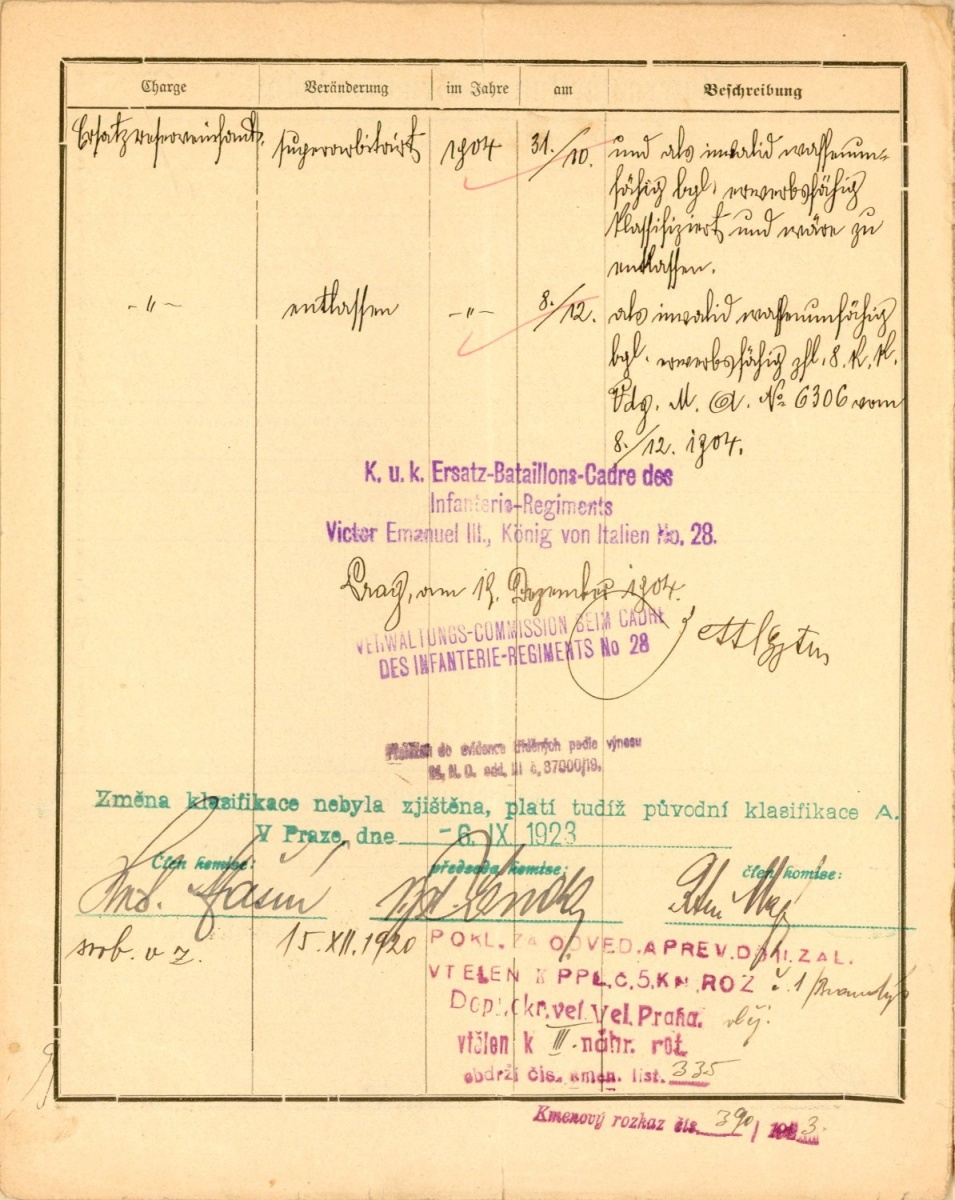 Charge Veränderung im Jahre am Beschreibung
Ersatzreserveinfant. superarbitriert 1904 31./10. und als invalid waffenun-
fähig bgl. erwerbsfähig
klassifiziert und wäre zu
entlassen.
-"- entlassen -"- 8./12. als invalid waffenunfähig
bgl. erwerbsfähig 8. K. K.
Vdg. M. A. No 6306 vom
8./12. 1904.
K. u. k. Ersatz-Bataillons-Cadre des
Infanterie-Regiments
Victor Emanuel III., König von Italien No. 28.
Prag, am 19. Dezember 1904.
VERWALTUNGS-COMMISSION BEIM CADRE
DES INFANTERIE-REGIMENTS No 28
do evidence tříděných podle výnosu
M. N. O. odd. III č. 37000/19.
Změna klasifikace nebyla zjištěna, platí tudíž původní klasifikace A.
V Praze, dne -6. IX. 1923
Člen komise: předseda komise: člen komise:
15. XII. 1920 POKL. ZA ODVED. A PREV. DO II. ZAL.
VTELEN K PPL. Č. 5. KN. ROZ č. 1
Dopl. okr. vel. Vel. Praha.
vtělen k III. náhr. rot.
obdrží čís. kmen. list. 335
Kmenový rozkaz čís. 390 / 1923.